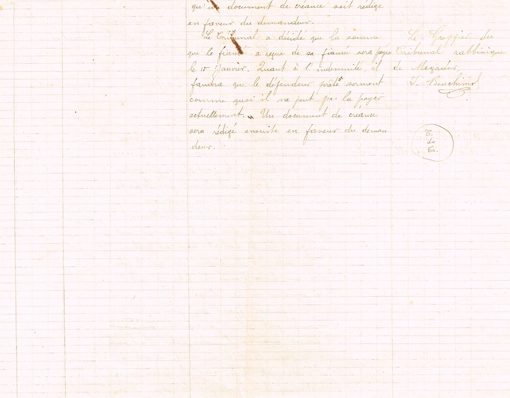 qu'un document de créance soit rédigé
en faveur du demandeur.
Le Tribunal a décidé que la somme
que le fiancé a reçue de sa fiancée sera payée
le 10 Janvier. Quant à l'indemnité, il
faudra que le défendeur prête serment
comme quoi il ne peut pas la payer
actuellement. Un document de créance
sera rédigé ensuite en faveur du deman
deur.
Le Greffier du
Tribunal rabbinique
de Mogador,